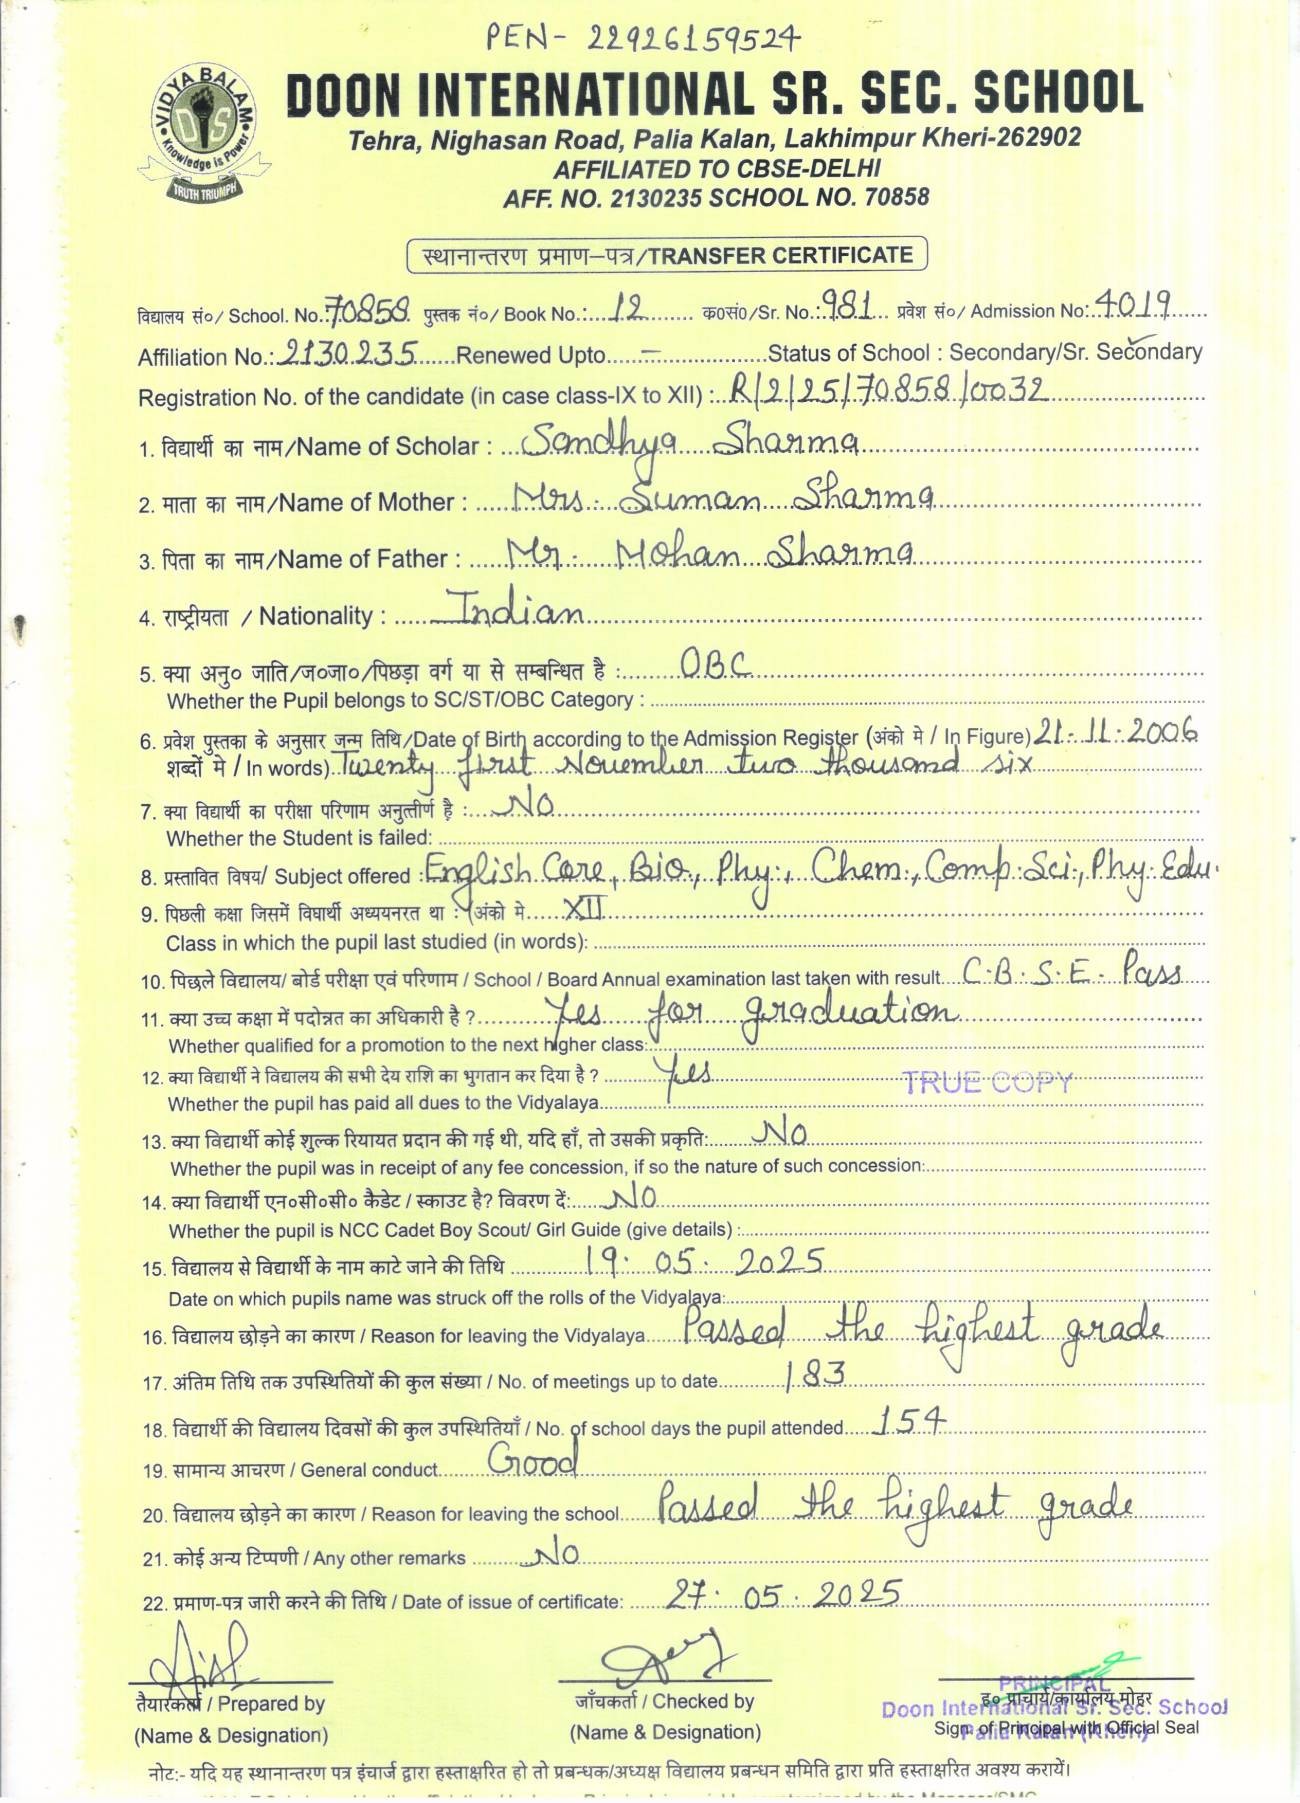 PEN- 22926159524
VIDYA BALAM
DIS
Knowledge is Power
TRUTH TRIUMPH
DOON INTERNATIONAL SR. SEC. SCHOOL
Tehra, Nighasan Road, Palia Kalan, Lakhimpur Kheri-262902
AFFILIATED TO CBSE-DELHI
AFF. NO. 2130235 SCHOOL NO. 70858
स्थानान्तरण प्रमाण–पत्र/TRANSFER CERTIFICATE
विद्यालय सं०/ School. No.:70858 पुस्तक नं०/ Book No.:....12........ क०सं०/Sr. No.:981... प्रवेश सं०/ Admission No:4019......
Affiliation No.:2130235......Renewed Upto.....–..................Status of School : Secondary/Sr. Secondary
Registration No. of the candidate (in case class-IX to XII) :..R/2/25/70858/0032
1. विद्यार्थी का नाम/Name of Scholar : ...Sandhya Sharma
2. माता का नाम/Name of Mother : .....Mrs. Suman Sharma
3. पिता का नाम/Name of Father : .....Mr. Mohan Sharma
4. राष्ट्रीयता / Nationality : .....Indian
5. क्या अनु० जाति/ज०जा०/पिछड़ा वर्ग या से सम्बन्धित है :........OBC
Whether the Pupil belongs to SC/ST/OBC Category :
6. प्रवेश पुस्तका के अनुसार जन्म तिथि/Date of Birth according to the Admission Register (अंको मे / In Figure) 21-11-2006
शब्दों मे / In words) Twenty first November two thousand six
7. क्या विद्यार्थी का परीक्षा परिणाम अनुत्तीर्ण है :....No
Whether the Student is failed:
8. प्रस्तावित विषय/ Subject offered :English Core, Bio., Phy., Chem., Comp. Sci., Phy. Edu.
9. पिछली कक्षा जिसमें विघार्थी अध्ययनरत था : (अंको मे......XII
Class in which the pupil last studied (in words):
10. पिछले विद्यालय/ बोर्ड परीक्षा एवं परिणाम / School / Board Annual examination last taken with result....C.B.S.E. Pass
11. क्या उच्च कक्षा में पदोन्नत का अधिकारी है ?............Yes for graduation
Whether qualified for a promotion to the next higher class:
12. क्या विद्यार्थी ने विद्यालय की सभी देय राशि का भुगतान कर दिया है ? .........Yes
TRUE COPY
Whether the pupil has paid all dues to the Vidyalaya
13. क्या विद्यार्थी कोई शुल्क रियायत प्रदान की गई थी, यदि हाँ, तो उसकी प्रकृति:........No
Whether the pupil was in receipt of any fee concession, if so the nature of such concession:
14. क्या विद्यार्थी एन०सी०सी० कैडेट / स्काउट है? विवरण दें:......No
Whether the pupil is NCC Cadet Boy Scout/ Girl Guide (give details) :
15. विद्यालय से विद्यार्थी के नाम काटे जाने की तिथि ............19. 05. 2025
Date on which pupils name was struck off the rolls of the Vidyalaya:
16. विद्यालय छोड़ने का कारण / Reason for leaving the Vidyalaya......Passed the highest grade
17. अंतिम तिथि तक उपस्थितियों की कुल संख्या / No. of meetings up to date............183
18. विद्यार्थी की विद्यालय दिवसों की कुल उपस्थितियाँ / No. of school days the pupil attended.....154
19. सामान्य आचरण / General conduct........Good
20. विद्यालय छोड़ने का कारण / Reason for leaving the school......Passed the highest grade
21. कोई अन्य टिप्पणी / Any other remarks ........No
22. प्रमाण-पत्र जारी करने की तिथि / Date of issue of certificate: .....27. 05. 2025
PRINCIPAL
तैयारकर्ता / Prepared by जाँचकर्ता / Checked by ह० प्राचार्य/कार्यालय मोहर
Doon International Sr. Sec. School
(Name & Designation) (Name & Designation) Sign. of Principal with Official Seal
Palia Kalan (Kheri)
नोट:- यदि यह स्थानान्तरण पत्र इंचार्ज द्वारा हस्ताक्षरित हो तो प्रबन्धक/अध्यक्ष विद्यालय प्रबन्धन समिति द्वारा प्रति हस्ताक्षरित अवश्य करायें।